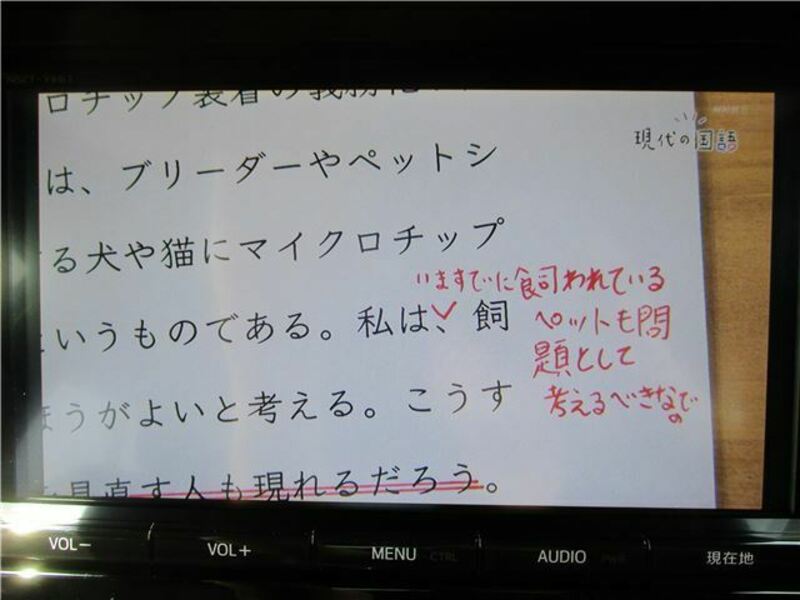 ロチップ装着の義務
は、ブリーダーやペットシ
る犬や猫にマイクロチップ
いうものである。私は、飼
ほうがよいと考える。こうす
見直す人も現れるだろう。
現代の国語
いますでに飼われている
ペットも問
題として
考えるべきなので
VOL−
VOL+
MENU
CTRL
AUDIO
PWR
現在地